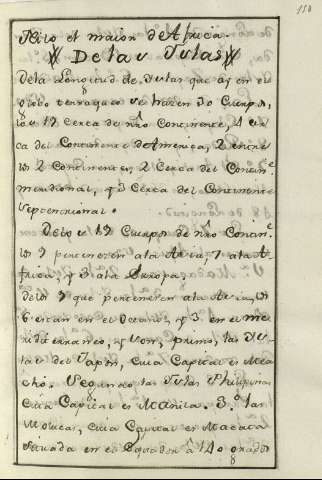 150
Nilo el maior de Africa.
De las Yslas
De la Longitud de Yslas que ay en el
Globo terraqueo se hazen 30 Cuerpos,
los 19 Cerca de nro Continente, 4 cer
ca del Continente de America, 2 entre
los 2 Continentes, 2 Cerca del Contin.e
meridional, y 3 Cerca del Continente
Septentrional.
De los 19 Cuerpos de nro Contin.e
los 9 pertenecen ala Asia, 7 ala A-
frica, y 3 ala Europa,
de los 9 que pertenecen ala Asia, los
6 estan en el Oceano, y 3 en el me
diterraneo, y son, primo, las Ys-
las del Japon, cuia Capital es Mea
cho. Segundo las Yslas Philipinas
cuia Capital es Manila. 3.o las
Molucas, cuia Capital es
situada en el Equador à 140 grados